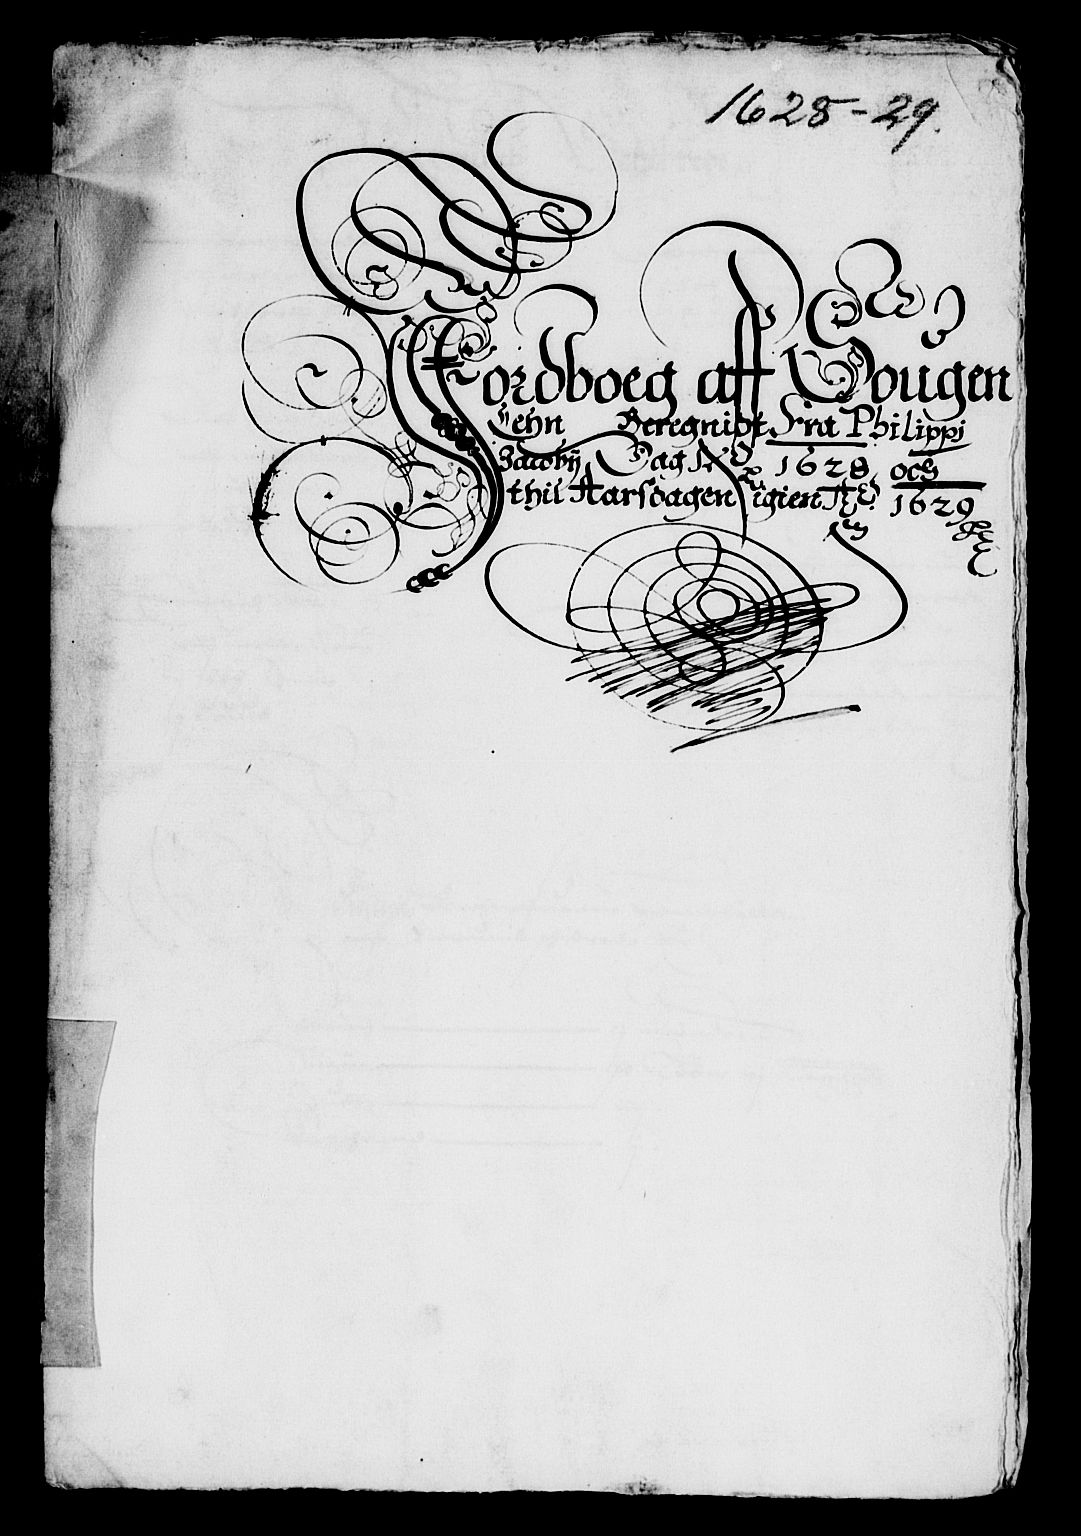 1628-29.
Jordboeg aff Bougen
Lehn Beregnidt Fra Philippi
Jacobij Dag 1628 och
thil Aarsdagen igien 1629